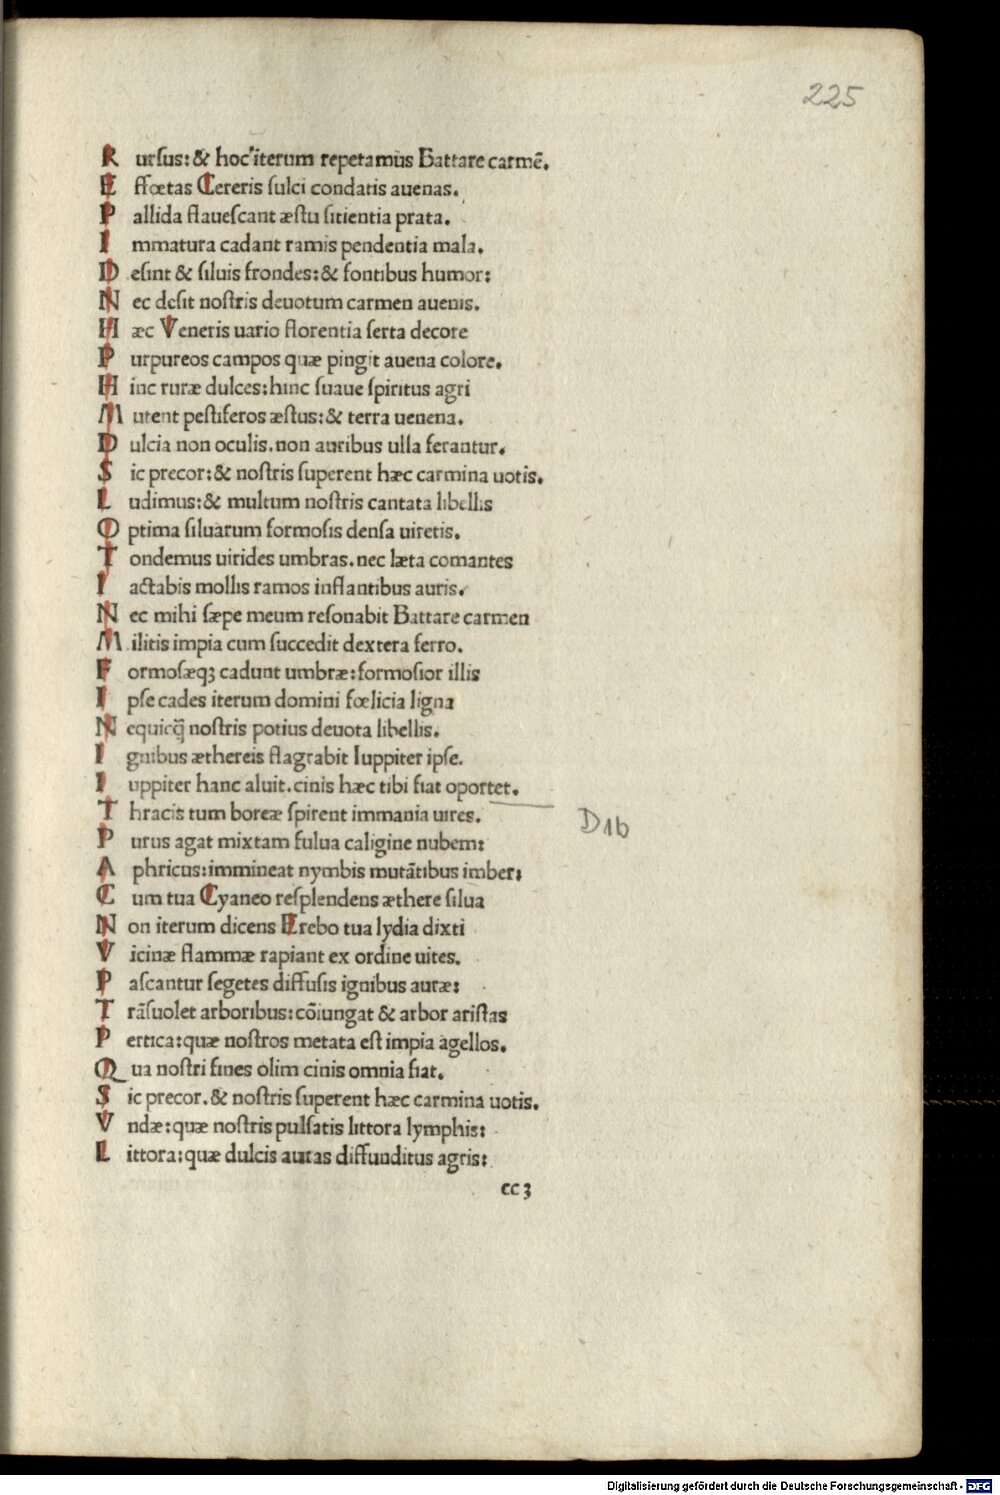 225
Rursus: & hoc iterum repetamus Battare carmē.
Effœtas Cereris sulci condatis auenas.
Pallida flauescant æstu sitientia prata.
Immatura cadant ramis pendentia mala.
Desint & siluis frondes: & fontibus humor:
Nec desit nostris deuotum carmen auenis.
Hæc Veneris uario florentia serta decore
Purpureos campos quæ pingit auena colore.
Hinc ruræ dulces: hinc suaue spiritus agri
Mutent pestiferos æstus: & terra uenena.
Dulcia non oculis. non auribus ulla ferantur.
Sic precor: & nostris superent hæc carmina uotis.
Ludimus: & multum nostris cantata libellis
Optima siluarum formosis densa uiretis.
Tondemus uirides umbras. nec læta comantes
Iactabis mollis ramos inflantibus auris.
Nec mihi sæpe meum resonabit Battare carmen
Militis impia cum succedit dextera ferro.
Formosæqꝫ cadunt umbræ: formosior illis
Ipse cades iterum domini fœlicia ligna
Nequicq̃ nostris potius deuota libellis.
Ignibus æthereis flagrabit Iuppiter ipse.
Iuppiter hanc aluit. cinis hæc tibi fiat oportet.
Thracis tum boreæ spirent immania uires.
D1b
Purus agat mixtam fulua caligine nubem:
Aphricus: immineat nymbis mutātibus imber:
Cum tua Cyaneo resplendens æthere silua
Non iterum dicens Erebo tua lydia dixti
Vicinæ flammæ rapiant ex ordine uites.
Pascantur segetes diffusis ignibus auræ:
Trāsuolet arboribus: cōiungat & arbor aristas
Pertica: quæ nostros metata est impia agellos.
Qua nostri fines olim cinis omnia fiat.
Sic precor. & nostris superent hæc carmina uotis.
Vndæ: quæ nostris pulsatis littora lymphis:
Littora: quæ dulcis auras diffunditus agris:
cc 3
Digitalisierung gefördert durch die Deutsche Forschungsgemeinschaft - DFG